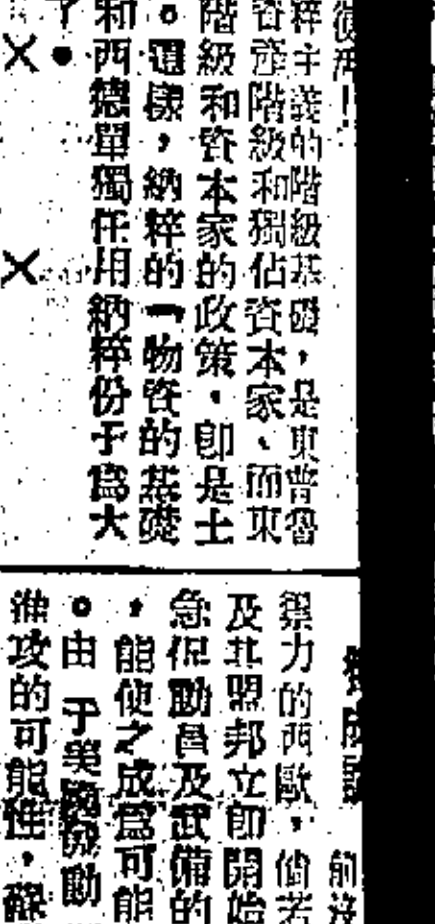 復活!!
粹主義的階級基礎,是東普魯
資產階級和獨佔資本家、而東
階級和資本家的政策,卽是土
。這樣,納粹的一物資的基礎
和西德單獨任用納粹份子爲大
了。
××
前述
禦力的西歐,倘若
及其盟邦立卽開始
急促動員及武備的
,能使之成爲可能
。由于美國動
進攻的可能性,